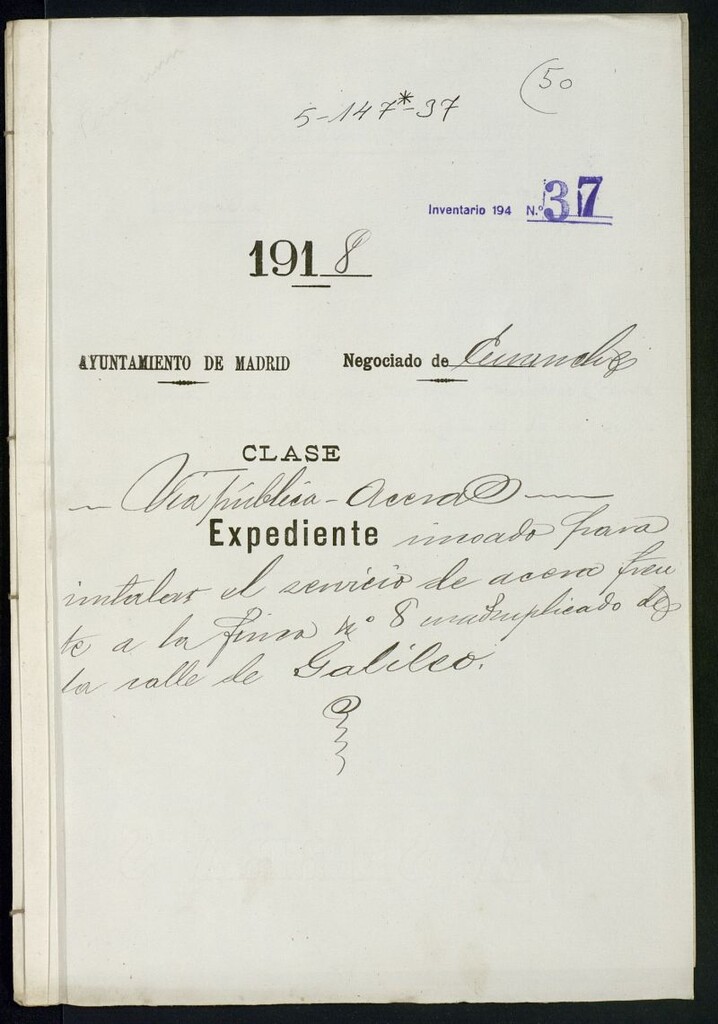 (50
5-147*-37
Inventario 194 N.º 37
1918
AYUNTAMIENTO DE MADRID Negociado de Ensanche
CLASE
Via pública - Aceras
Expediente incoado para
instalar el servicio de acera fren
te a la finca nº 8 cuadruplicado de
la calle de Galileo.